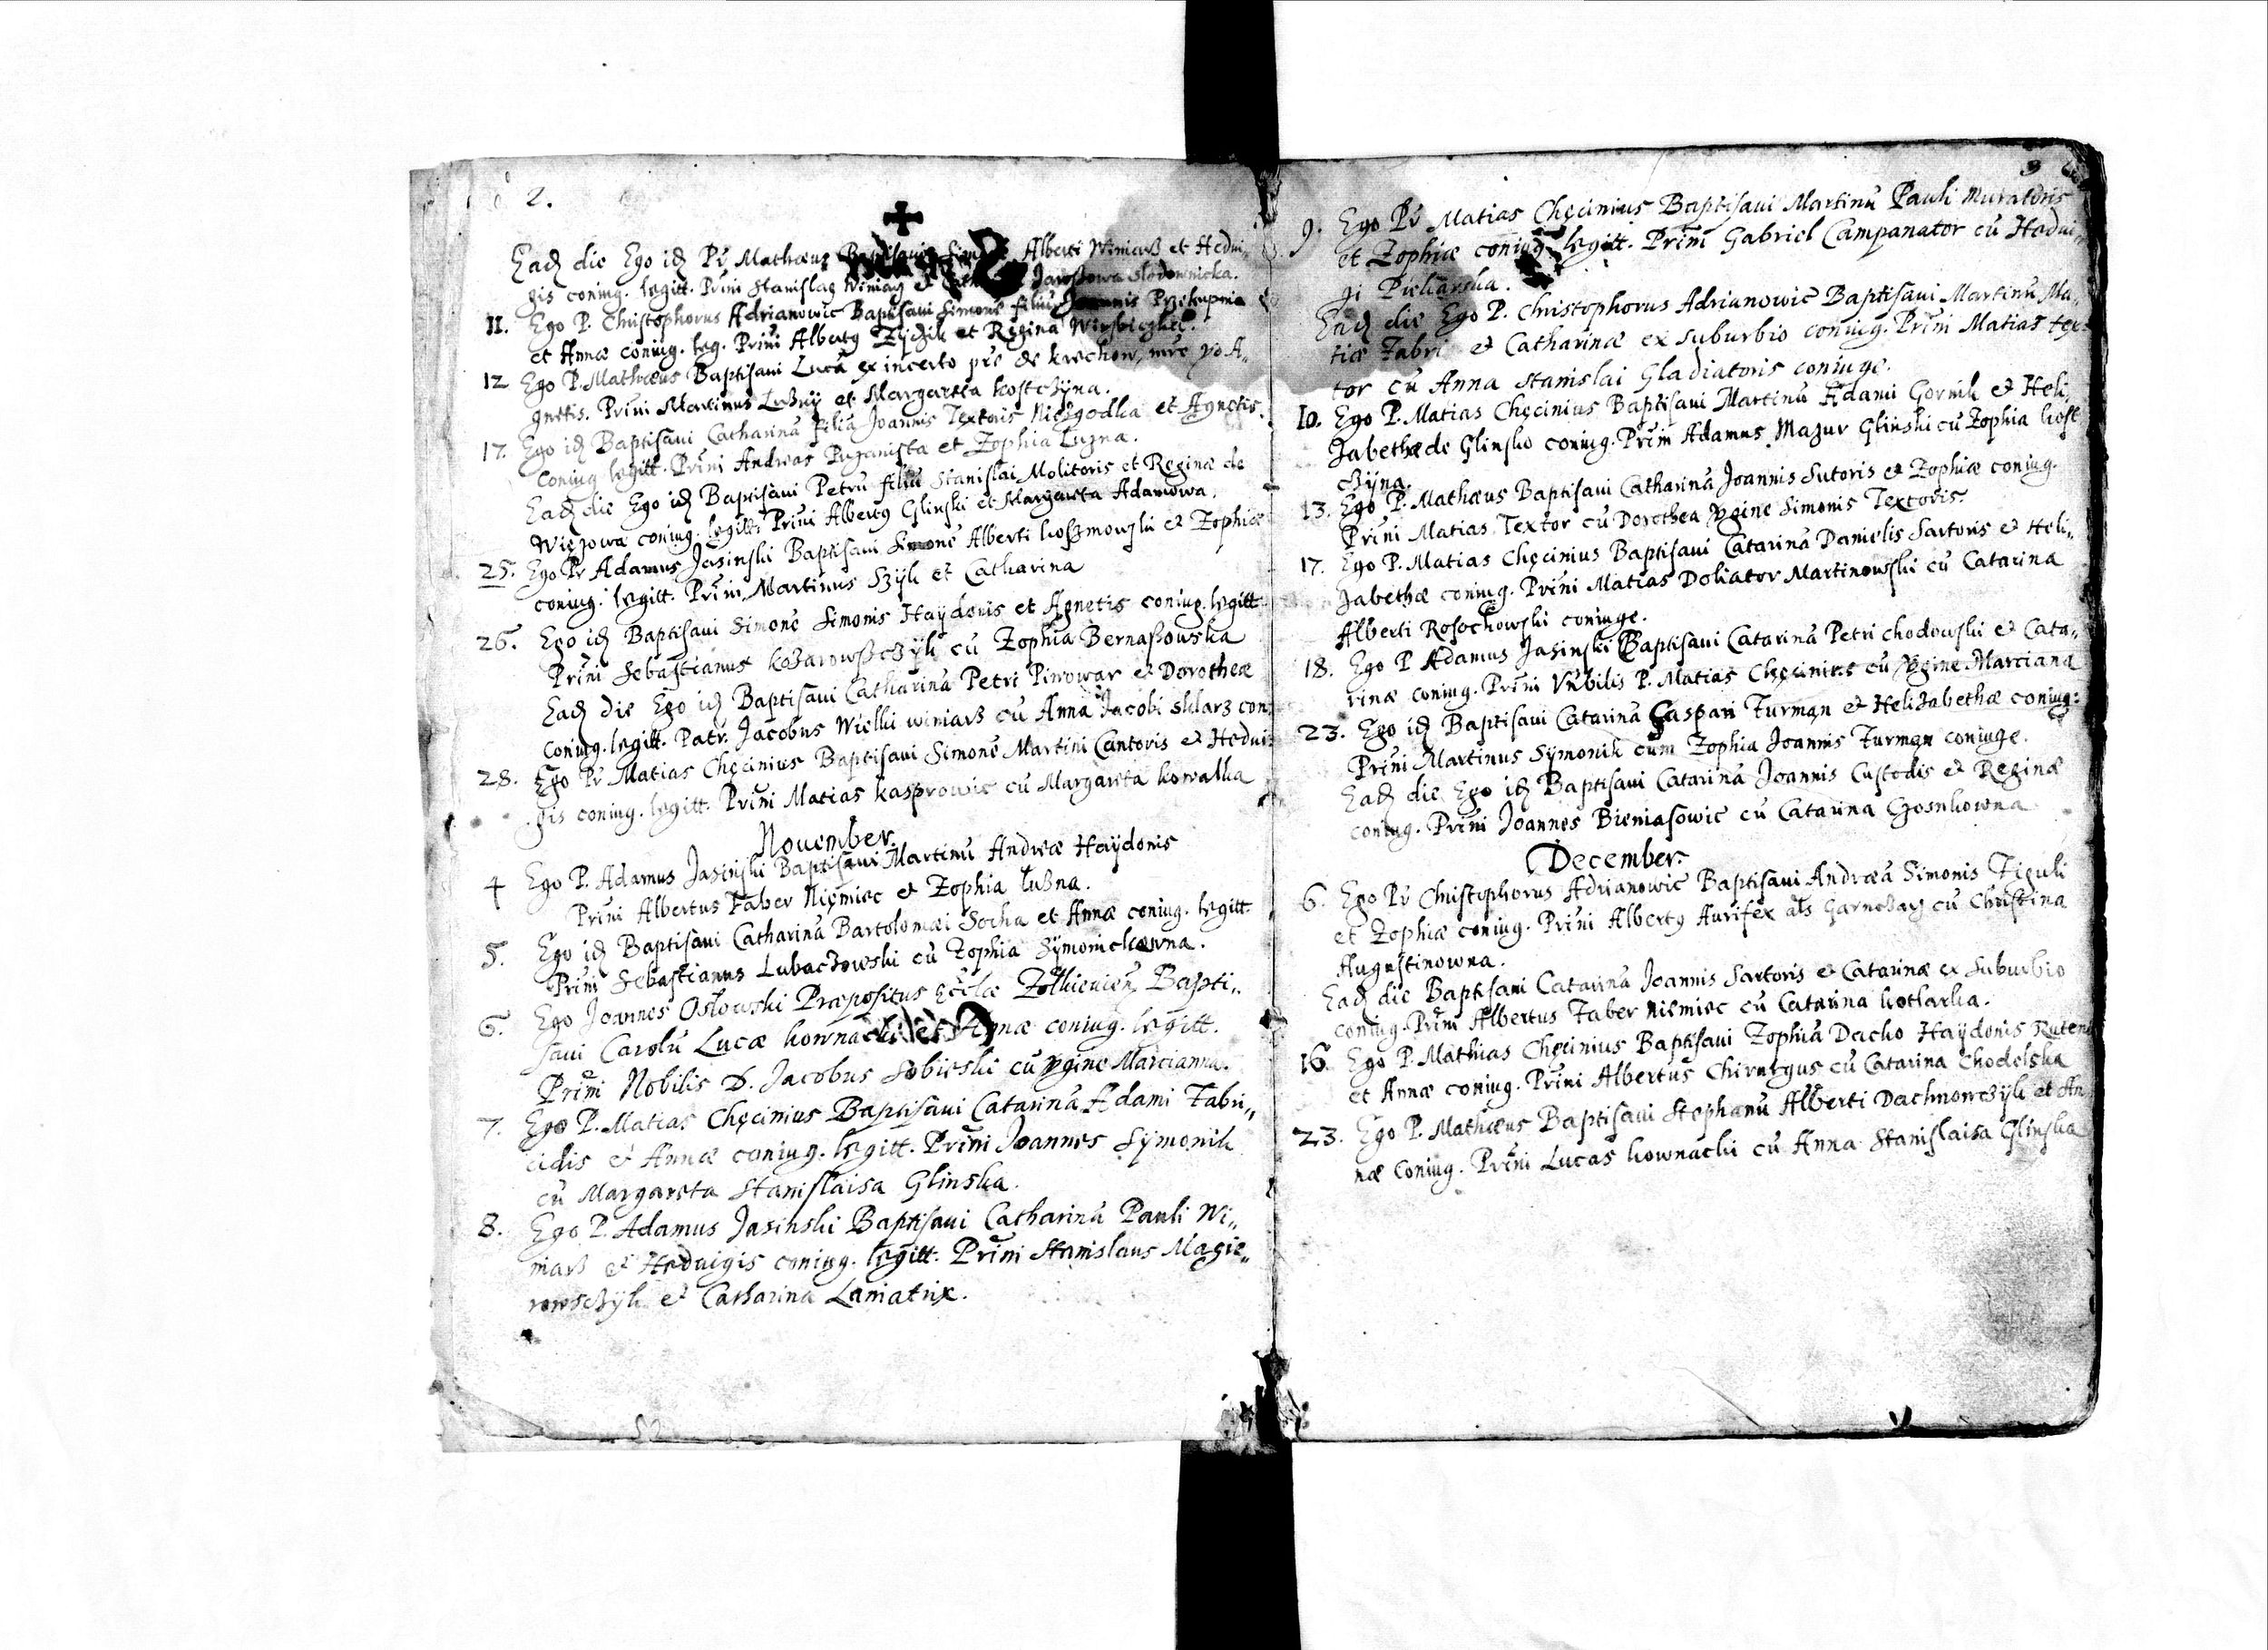 2.
Ead die Ego id Pr Mathæus Baptisaui Alberti Winiarß et Hedui„
gis coniug. legitt. Prini Stanislaq Winiarz et Jaroßowa Słodownicka.
11. Ego P. Christophorus Adrianowic Baptisaui Simonē filiū Joannis Przekupnia
et Annæ coniug. leg. Prini Albertq Zyczik et Regina
12 Ego P. Mathæus Baptisaui Lucā ex incerto pre de krechow, mre vo A„
gnetis. Prini Martinus Lußny et Margareta kostczyna.
17. Ego id Baptisaui Catharinā filiā Joannis Textoris Niezgodka et Agnetis.
Coniug legitt. Prini Andreas Puzanista et Zophia Luzna.
Ead die Ego id Baptisaui Petrū filiū Stanislai Molitoris et Reginæ de
Więzowa coniug. legitt. Prini Albertq Glinski et Margareta Adamowa.
25. Ego Pr Adamus Jasinski Baptisaui Simonē Alberti koßmowski et Zophiæ
coniug. legitt. Prini Martinus Szyk et Catharina
26. Ego id Baptisaui Simonē Simonis Haydonis et Agnetis coniug. legitt
Prini Sebastianus kozarowßczyk cū Zophia Bernaßowska
Ead die Ego id Baptisaui Catharinā Petri Piwowar et Dorotheæ
Coniug. legitt. Patr. Jacobus Wielki winiarß cū Anna Jacobi sklarz con:
28. Ego Pr Matias Chęcinius Baptisaui Simonē Martini Cantoris et Hedui„
gis coniug. legitt. Prini Matias kasprowic cū Margareta kowalka
Nouember.
4 Ego P. Adamus Jasinski Baptisaui Martinū Andreæ Haydonis
Prini Albertus Faber Niemiec et Zophia Lußna.
5. Ego id Baptisaui Catharinā Bartolomæi Socha et Annæ coniug. legitt.
Prini Sebastianus Lubaczowski cū Zophia Symonickowna.
6. Ego Joannes Osłowski Præpositus Ecclæ Zołkieuien Bapti„
saui Carolū Lucæ kownacki et Annæ coniug. legitt.
Prini Nobilis D. Jacobus Sobieski cū vgine Marcianna.
7. Ego P. Matias Chęcinius Baptisaui Catarinā Adami Fabri„
cidis et Annæ coniug. legitt. Prini Joannes Symonik
cū Margareta Stanislaisa Glinska.
8. Ego P. Adamus Jasinski Baptisaui Catharinā Pauli Wi„
niarß et Heduigis coniug. legitt. Prini Stanislaus Magie„
rowsczyk et Catharina Laniatrix.
3
9. Ego Pr Matias Chęcinius Baptisaui Martinū Pauli Muratoris
et Zophiæ coniug. legitt. Prini Gabriel Campanator cū Hedui„
gi Piekarska.
Ead die Ego P. Christophorus Adrianowic Baptisaui Martinū Ma„
tiæ Fabri et Catharinæ ex suburbio coniug. Prini Matias tex„
tor cū Anna Stanislai Gladiatoris coniuge.
10. Ego P. Matias Chęcinius Baptisaui Martinū Adami Gornik et Heli„
zabethæ de Glinsko coniug. Prini Adamus Mazur Glinski cū Zophia kost
czyna.
13. Ego P. Mathæus Baptisaui Catharinā Joannis Sutoris et Zophiæ coniug.
Prini Matias Textor cū Dorothea vgine Simonis Textoris.
17. Ego P. Matias Chęcinius Baptisaui Catarinā Danielis Sartoris et Heli„
zabethæ coniug. Prini Matias Doliator Martinowski cū Catarina
Alberti Rosochowski coniuge.
18. Ego P Adamus Jasinski Baptisaui Catarinā Petri chodowski et Cata„
rinæ coniug. Prini P. Matias Chęcinius cū vgine Marciana
23. Ego id Baptisaui Catarinā Caspari Furman et Helizabethæ coniug:
Prini Martinus Symonik cum Zophia Joannis Furman coniuge.
Ead die Ego id Baptisaui Catarinā Joannis Custodis et Reginæ
coniug. Prini Joannes Bieniasowic cū Catarina Czosnkowna
December.
6. Ego Pr Christophorus Adrianowic Baptisaui Andreā Simonis Figuli
et Zophiæ coniug. Prini Albertq Aurifex als Garnczarz cū Christina
Augustinowna.
Ead die Baptisaui Catarinā Joannis Sartoris et Catarinæ ex Suburbio
coniug. Prini Albertus Faber niemiec cū Catarina kotlarka.
16 Ego P. Mathias Chęcinius Baptisaui Zophiā Dacho Haydonis Ruteni
et Annæ coniug. Prini Albertus Chirurgus cū Catarina Chodelska
23. Ego P. Mathæus Baptisaui Stephanū Alberti Dachnowczyk et An
næ Coniug. Prini Lucas kownacki cū Anna Stanislaisa Glinska